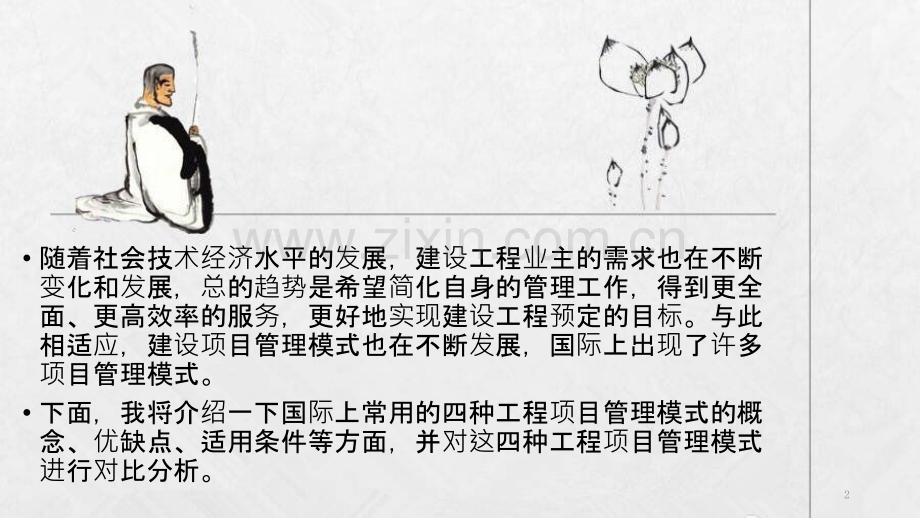 • 随着社会技术经济水平的发展，建设工程业主的需求也在不断
变化和发展，总的趋势是希望简化自身的管理工作，得到更全
面、更高效率的服务，更好地实现建设工程预定的目标。与此
相适应，建设项目管理模式也在不断发展，国际上出现了许多
项目管理模式。
• 下面，我将介绍一下国际上常用的四种工程项目管理模式的概
念、优缺点、适用条件等方面，并对这四种工程项目管理模式
进行对比分析。
www.zixin.com.cn
2